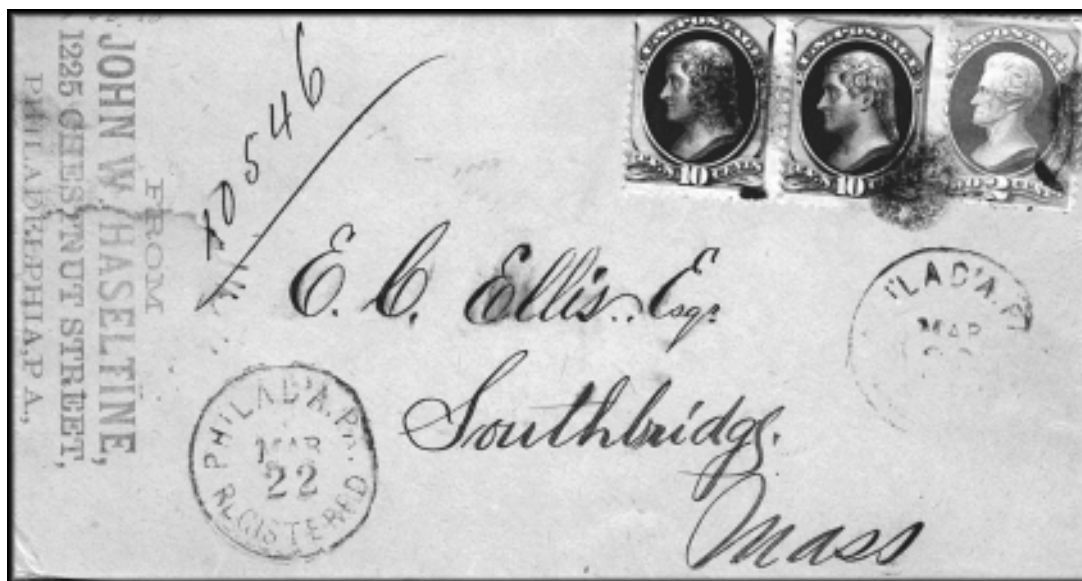 FROM
JOHN W. HASELTINE,
1225 CHESTNUT STREET,
PHILADELPHIA, PA.,
40546
U.S. POSTAGE
TEN 10 CENTS
U.S. POSTAGE
TEN 10 CENTS
U.S. POSTAGE
2
E. C. Ellis. Esqr
Southbridge.
Mass
PHILAD'A. PA.
MAR
22
REGISTERED
ILAD'A. P
MAR